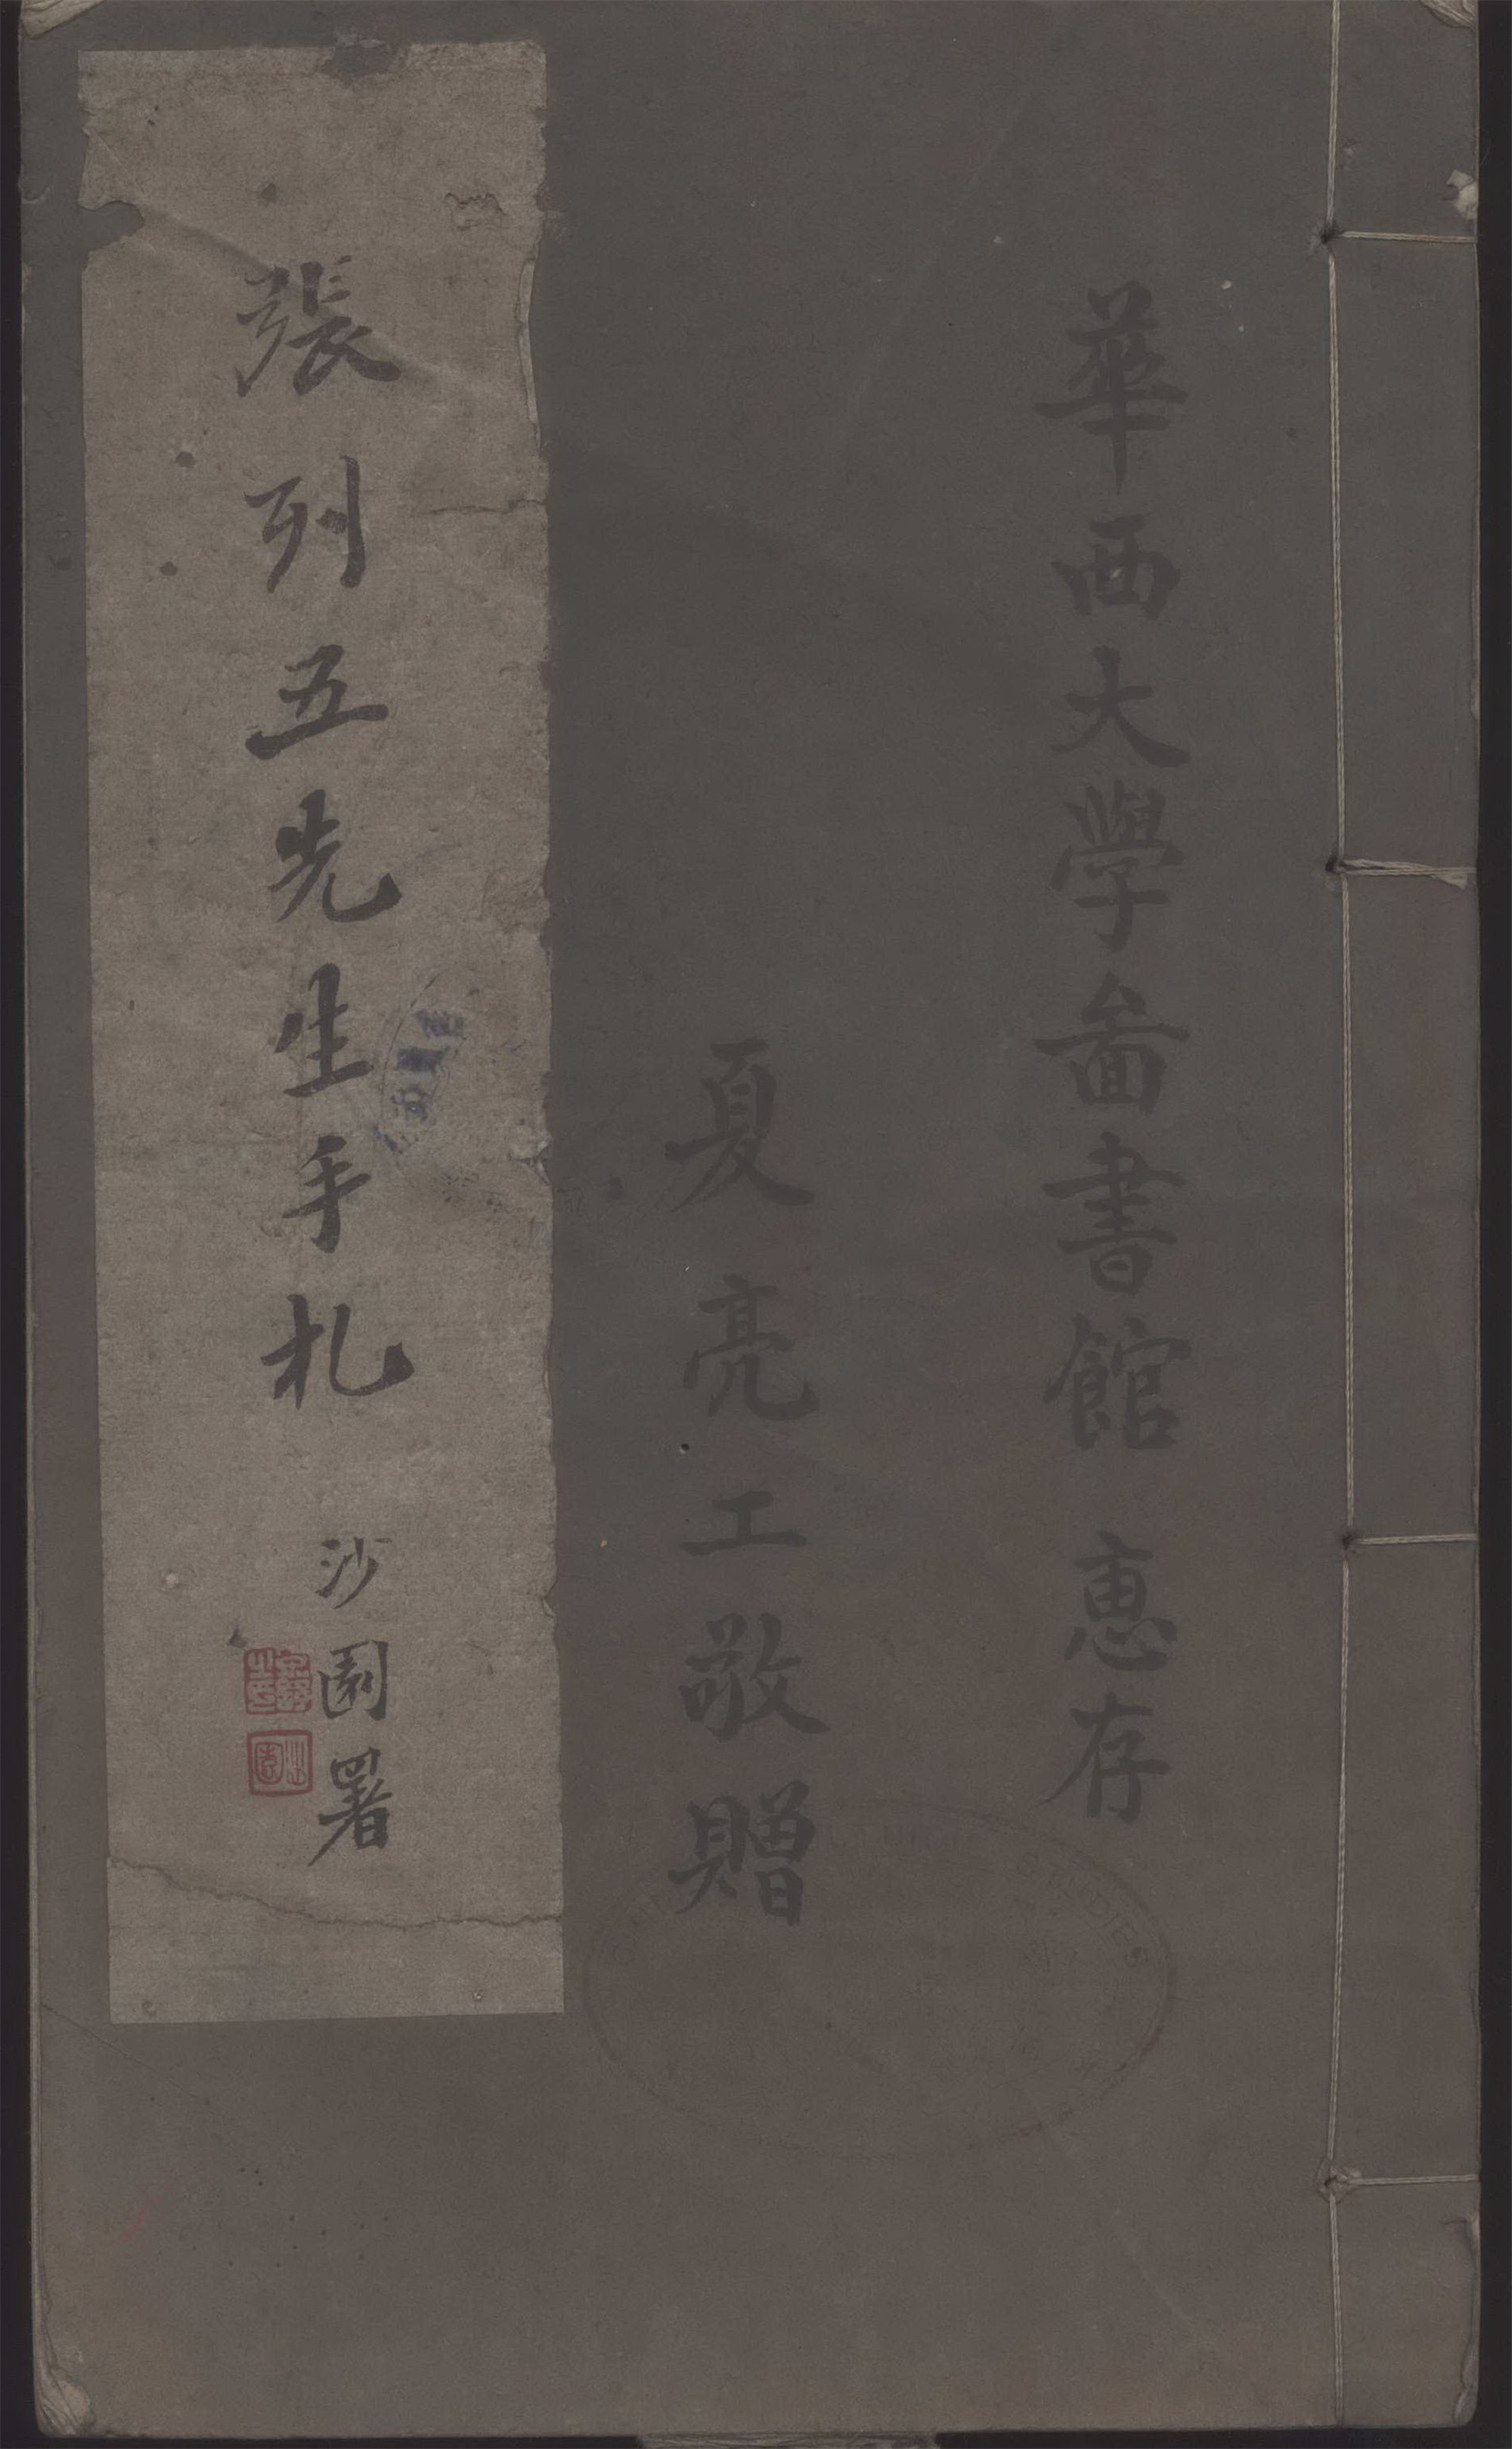 華西大學啚書館 惠存
夏亮工敬贈
張列五先生手札
沙園署
STUDIES